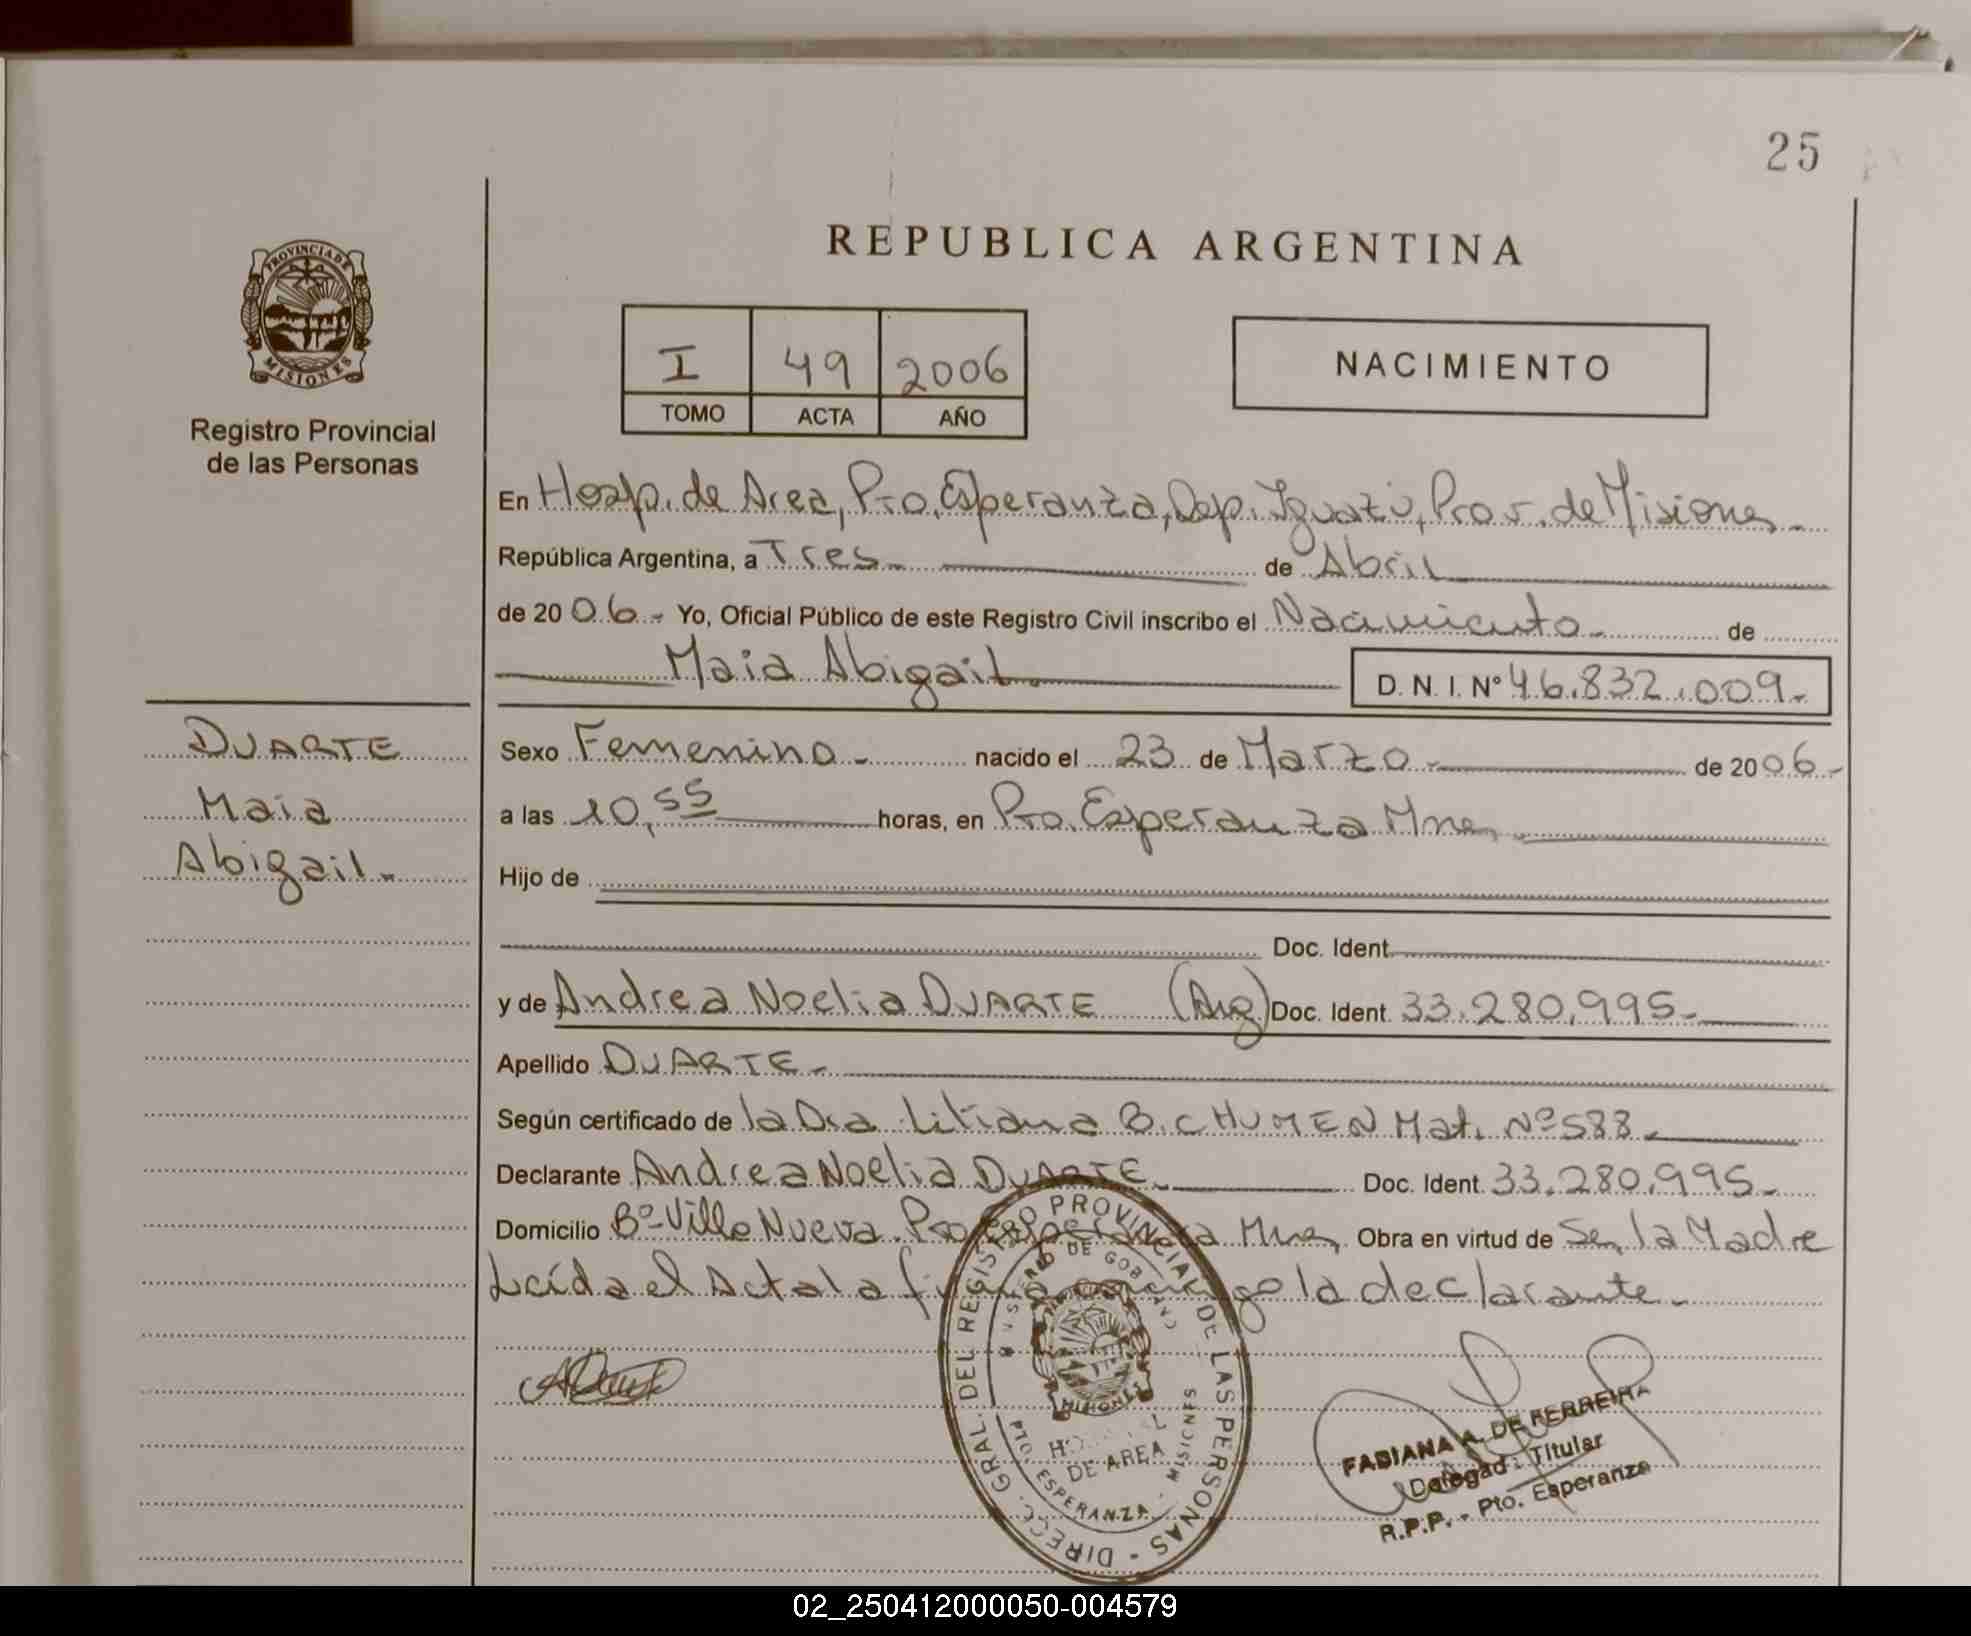 25
PROVINCIA DE
MISIONES
Registro Provincial
de las Personas
REPUBLICA ARGENTINA
I 49 2006
TOMO ACTA AÑO
NACIMIENTO
En Hosp. de Area, Pto. Esperanza, Dep. Iguazú, Prov. de Misiones.-
República Argentina, a Tres.- de Abril
de 2006.- Yo, Oficial Público de este Registro Civil inscribo el Nacimiento.- de
Maia Abigail.- D. N. I. N° 46.832.009.-
DUARTE
Maia
Abigail.-
Sexo Femenino.- nacido el 23 de Marzo.- de 2006.-
a las 10,55 horas, en Pto. Esperanza Mnes,
Hijo de
Doc. Ident.
y de Andrea Noelia DUARTE (Arg) Doc. Ident. 33.280.995.-
Apellido DUARTE.-
Según certificado de la Dra Liliana B. CHUMEN Mat. Nº 588.-
Declarante Andrea Noelia DUARTE.- Doc. Ident. 33.280.995.-
Domicilio Bº Villa Nueva. Pto Esperanza Mnes, Obra en virtud de Ser, la Madre
Leída el Acta la firma conmigo la declarante.-
DIRECC. GRAL. DEL REGISTRO PROVINCIAL DE LAS PERSONAS -
MINISTERIO DE GOBIERNO
MISIONES
HOSPITAL
DE AREA
ESPERANZA - MISIONES
FABIANA A. DE FERREIRA
Delegada Titular
R.P.P. - Pto. Esperanza
02_250412000050-004579